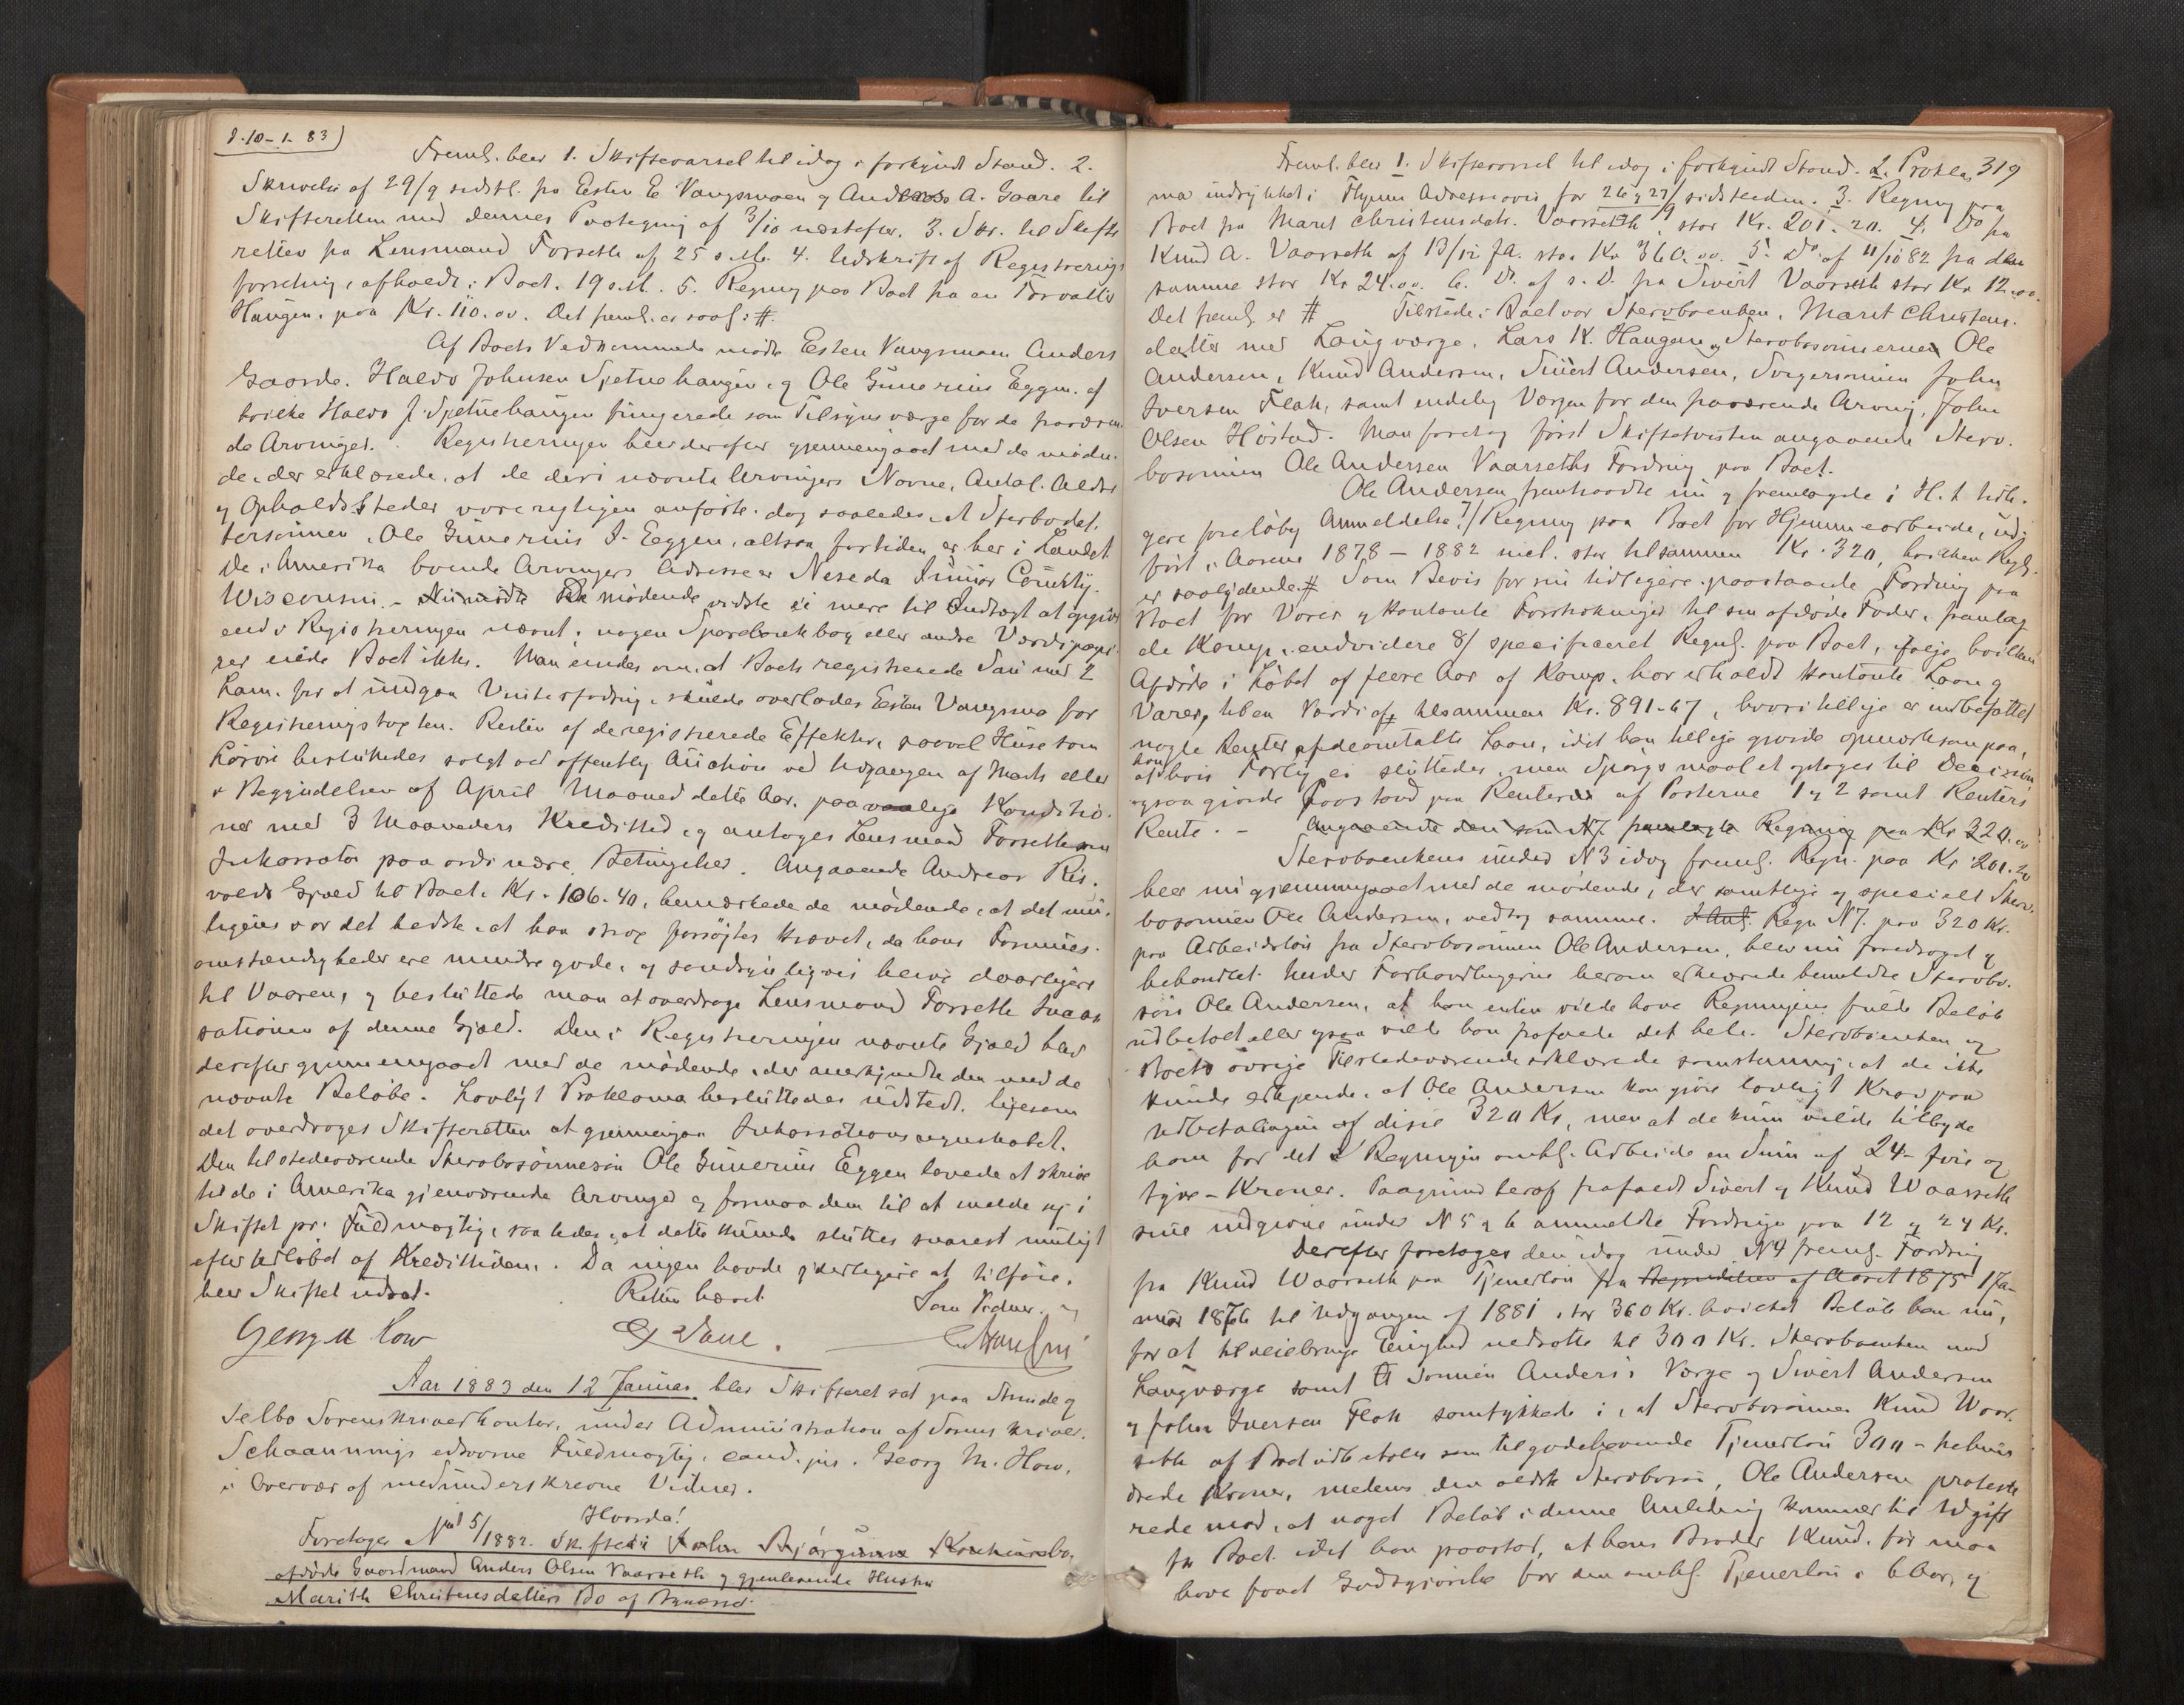 d. 10-1-83)
Freml. blev 1. Skiftevarsel til idag i forkyndt Stand. 2.
Skrivelse af 29/9 sidstl. fra Esten E Vangsmoen og Anders A. Gaare til
Skifteretten med dennes Paategning af 3/10 næstefter. 3. Skr. til Skifte
retten fra Lensmand Forseth af 25 s. M. 4. Udskrift af Registrerings
forretning, afholdt i Boet. 19 s. M. 5. Regning paa Boet fra en Torvald
Haugen. paa Kr. 110.00. Det freml. er saal: #.
Af Boets Vedkommende mødte Esten Vangsmoen Anders
Gaarde. Haldo Johnsen Spetnehaugen, og Ole Gunerius Eggen. af
hvilke Haldo J. Spetnehaugen fungerede som Tilsynsværge for de fraværen
de Arvinger. Registreringen blev derefter gjennemgaaet med de mødende
de, der erklærede, at de deri nævnte Arvingers Navne, Antal. Alder
og Opholdssteder vare rigtigen anførte. dog saaledes, at Sterbodat.
tersønnen, Ole Gunerius J. Eggen, altsaa fortiden er her i Landet.
De i Amerika boende Arvingers Adresse er Neseda Juniar County.
Wisconsin. - De mødende vidste ei mere til Indtægt at opgive
end i Registreringen nævnt; nogen Sparebankbog eller andre Værdipapi-
rer eiede Boet ikke. Man enedes om, at Boets registrerede Sau med 2
Lam. for at undgaa Vinterfodring, skulde overlades Esten Vangsmo for
Registreringstaxten. Resten af de registrerede Effekter, saavel Huse som
Løsøre besluttedes solgt ved offentlig Auction ved Udgangen af Marts eller
i Begyndelsen af April Maaned dette Aar. paa vanlige Konditio-
ner med 3 Maaneders Kredittid, og antoges Lensmand Forseth som
Inkassator paa ordinære Betingelser. Angaaende Andreas Ris.
volds Gjæld til Boet. Kr. 106.40, bemærkede de mødende, at det mu-
ligens var det bedste, at han strax forsøgtes krævet, da hans Formues.
omstændigheder ere mindre gode, og sandsynligvis blive daarligere
til Vaaren, og besluttede man at overdrage Lensmand Forseth Inkas
sationen af denne Gjæld. Den i Registreringen nævnte Gjæld blev
derefter gjennemgaaet med de mødende, der anerkjendte den med de
nævnte Beløbe. Lovligt Proklama besluttedes udstedt, ligesom
det overdroges Skifteretten at gjennemgaa Inkassationsregnskabet.
Den tilstedeværende Sterbosønnesøn Ole Gunerius Eggen lovede at skrive
til de i Amerika gjenværende Arvinger og formaa dem til at melde sig i
Skiftet pr. Fuldmægtig, saaledes, at dette kunde sluttes snarest muligt
efter Udløbet af Kredittiden. Da ingen havde yderligere at tilføre,
blev Skiftet udsat. Retten hævet. Som Vidner.
Georg M How
Aar 1883 den 12 Januar blev Skifteret sat paa Strinde og
Selbo Sorenskriverkontor, under Administration af Sorenskriver.
Schaannings edsvorne Fuldmægtig, cand. jur. Georg M. How,
i Overvær af medunderskrevne Vidner.
Hvorda!
Foretoges No 5/1882. Skifte i
afdøde Gaardmand Anders Olsen Vaarseth og gjenlevende Hustru
Marith Christensdatters Bo af Bynæsset.
319
Freml. blev 1. Skiftevarsel til idag i forkyndt Stand. 2. Prokla-
ma indrykket i Thjems Adresseavis for 26 og 27/9 sidstleden. 3. Regning paa
Boet fra Marit Christensdatr. Vaarseth, stor Kr. 201.20. 4. Do fra
Knud A. Vaarseth af 13/12 f.A. stor Kr 360.00. 5. Do af 11/10 82 fra den
samme stor Kr 24.00. 6. Do. af s. D. fra Sivert Vaarseth stor Kr 12.00.
Det freml. er # Tilstede i Boet var Stervboenken, Marit Christens.
datter med Laugværge, Lars K. Haugan, Stervbosønnerne Ole
Andersen, Knud Andersen, Sivert Andersen, Svigersønnen John
Iversen Flak, samt endelig Værgen for den fraværende Arving, John
Olsen Høstad. Man foretog først Skiftetvisten angaaende Sterv.
bosønnen Ole Andersen Vaarseths Fordring paa Boet.
Ole Andersen fremstod nu og fremlagde i H. t. tidli-
gere foreløbig Anmeldelse 7/ Regning paa Boet for Hjemmearbeide, ud-
ført i Aarene 1878 - 1882 incl. stor tilsammen Kr. 320, hvilken Regg.
er saalydende # Som Bevis for sin tidligere paastaaede Fordring paa
Boet for Varer og kontante Forstrækninger til sin afdøde Fader, fremlag
de Komp. endvidere 8/ specificeret Regng. paa Boet, ifølge hvilken
Afdøde i Løbet af flere Aar af Komp. har erholdt kontante Laan og
Varer, til en Værdi af tilsammen Kr. 891-67, hvori tillige er indbefattet
nogle Renter af de omtalte Laan, idet han tillige gjorde opmærksom paa,
at hvis Forlig ei sluttedes, men Spørgsmaalet optages til Decision
han ogsaa gjorde Paastand paa Renter af Posterne 1 og 2 samt Renters
Rente. - Angaaende den sub N 7. fremlagte Regning paa Kr 320.00
Stervboenkens under N 3 idag freml. Regn. paa Kr 201.20
blev nu gjennemgaaet med de mødende, der samtlige og specielt Sterv.
bosønnen Ole Andersen, vedtog samme. Regn N 7. paa 320 Kr.
paa Arbeidsløn fra Stervbosønnen Ole Andersen, blev nu foredraget og
behandlet. Under Forhandlingerne herom erklærede bemeldte Stervbo.
søn Ole Andersen, at han enten vilde have Regningens fulde Beløb
udbetalt eller ogsaa vilde han frafalde det hele. Stervboenken og
Boets øvrige Tilstedeværende erklærede samstemmig, at de ikke
kunde erkjende, at Ole Andersen kan gjøre lovligt Krav paa
Udbetalingen af disse 320 Kr, men at de kun vilde tilbyde
ham for det i Regningen omhl. Arbeide en Sum af 24- fire og
tyve - Kroner. Paagrund heraf frafaldt Sivert og Knud Waarseth
sine indgivne under N 5 og 6 anmeldte Fordringer paa 12 og 24 Kr.
Derefter foretoges den idag under N 4 freml. Fordring
fra Knud Waarseth paa Tjenerløn fra Begyndelsen af Aaret 1875 1 Ja-
nuar 1876 til Udgangen af 1881, stor 360 Kr. hvilket Beløb han nu,
for at tilveiebringe Enighed nedsatte til 300 Kr. Stervboenken med
Laugværge samt Sønnen Anders's Værge og Sivert Andersen
og John Iversen Flak samtykkede i, at Stervbosønnen Knud Waar.
seth af Boet udbetales som tilgodehavende Tjenerløn 300 - trehun
drede Kroner, medens den ældste Stervbosøn, Ole Andersen proteste
rede mod, at noget Beløb i denne Anledning kommer til Udgift
for Boet. idet han paastod, at hans Broder Knud, før maa
have faaet Godtgjørelse for den omhl. Tjenerløn i 6 Aar, og